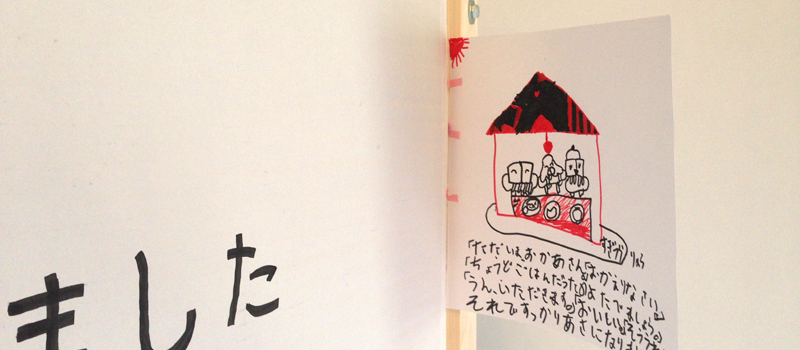 ました
すぎが りょう
「ただいま、おかあさん」「おかえりなさい。」
「ちょうどごはんだったのよ
たべましょう。」
「うん、いただきます。」「おいしい」
それですっかりあさになりま